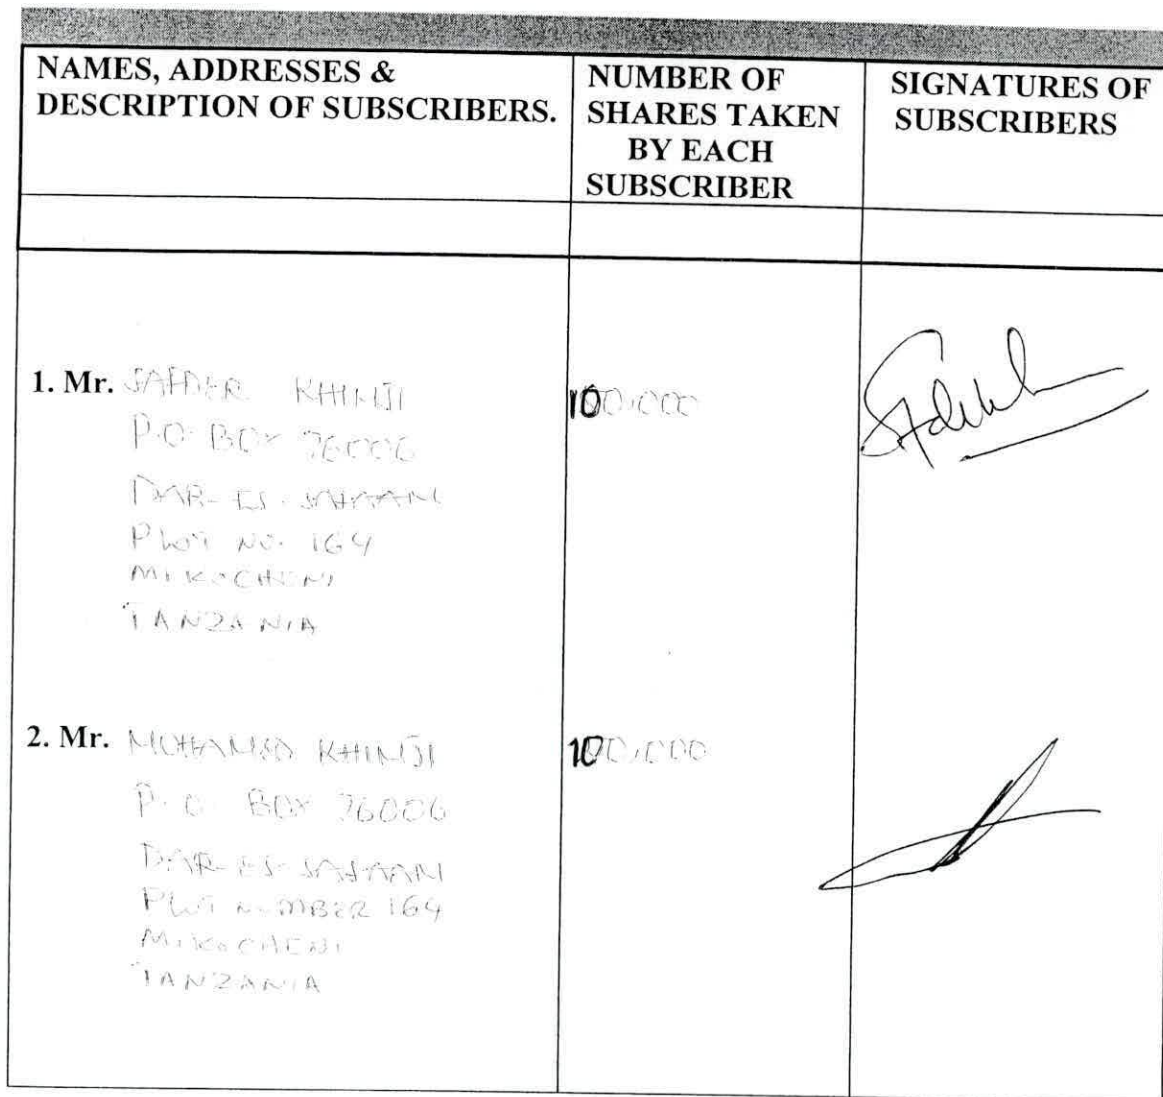 NAMES, ADDRESSES &
DESCRIPTION OF SUBSCRIBERS.
NUMBER OF
SHARES TAKEN
BY EACH
SUBSCRIBER
SIGNATURES OF
SUBSCRIBERS
1. Mr. SAFDER KHIMJI
P.O. BOX 76006
DAR-ES-SALAAM
PLOT NO. 164
MIKOCHENI
TANZANIA
100,000
2. Mr. MOHAMED KHIMJI
P.O. BOX 76006
DAR-ES-SALAAM
PLOT NUMBER 164
MIKOCHENI
TANZANIA
100,000